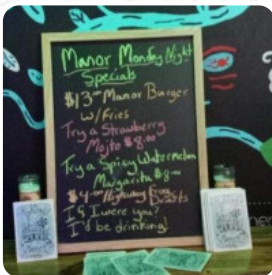 Manor Monday Night
Specials
$13.00 Manor Burger
w/Fries
Try a Strawberry
Mojito $8.00
Try a Spicy Watermelon
Margarita $8.00
$4.00 Frog
Drafts
If I were you?
I'd be drinking!